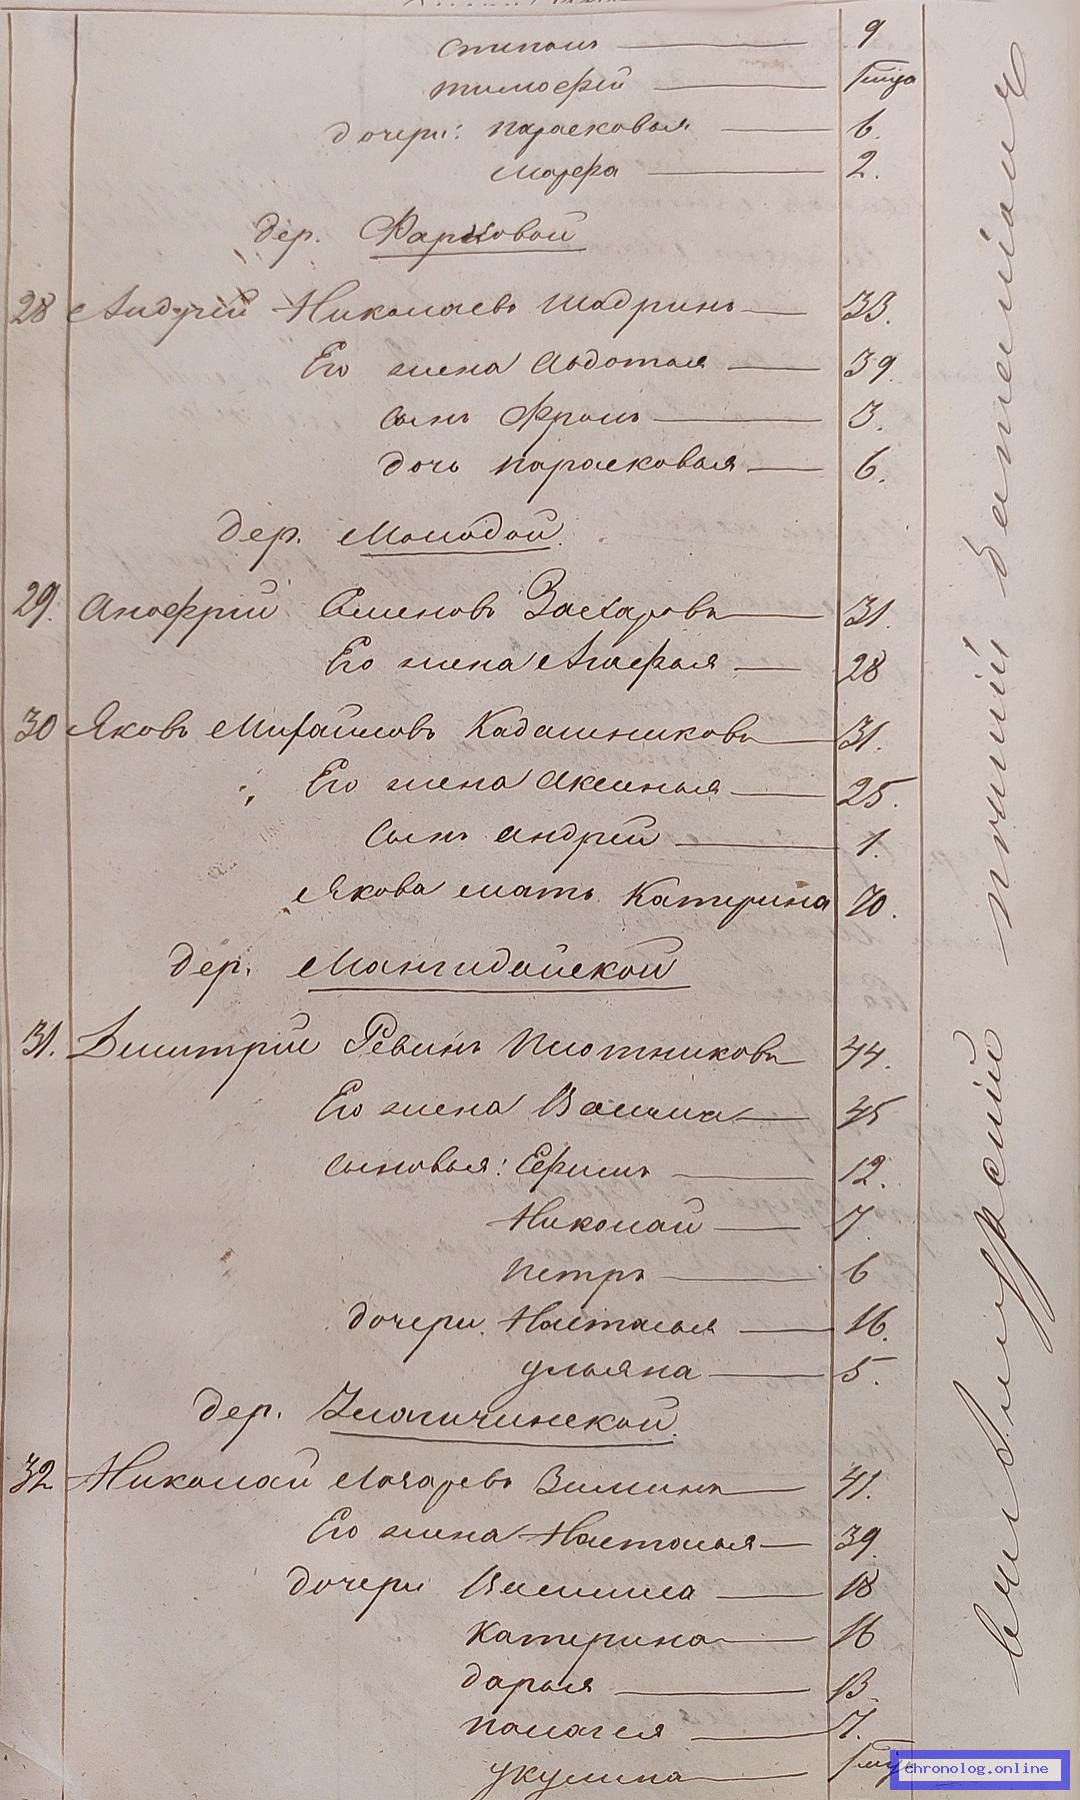 степанъ 9
тимофей
дочери: парасковья 6.
марфа 2.
дер. Фарковой
28 Андрей Николаевъ Шадринъ 33.
Его жена Авдотья 39.
Сынъ Фролъ 3.
дочь парасковья 6.
дер. Молодой
29. Анофрiй Семеновъ Захаровъ 31.
Его жена Агафья 28
30 Яковъ Михайловъ Кадашниковъ 31.
Его жена Аксинья 25.
Сынъ андрей 1.
Якова мать Катерина 70.
дер. Мангидайской
31. Димитрiй Плотниковъ 44.
Его жена 45
сыновья: Ефимъ 12.
Николай 7.
петръ 6
дочери Наталья 16.
ульяна 5.
дер.
32 Николай Зиминъ 41.
Его жена Наталья 39.
дочери 18
Катерина 16
дарья 13.
палагея 7.
укулина
chronolog.online